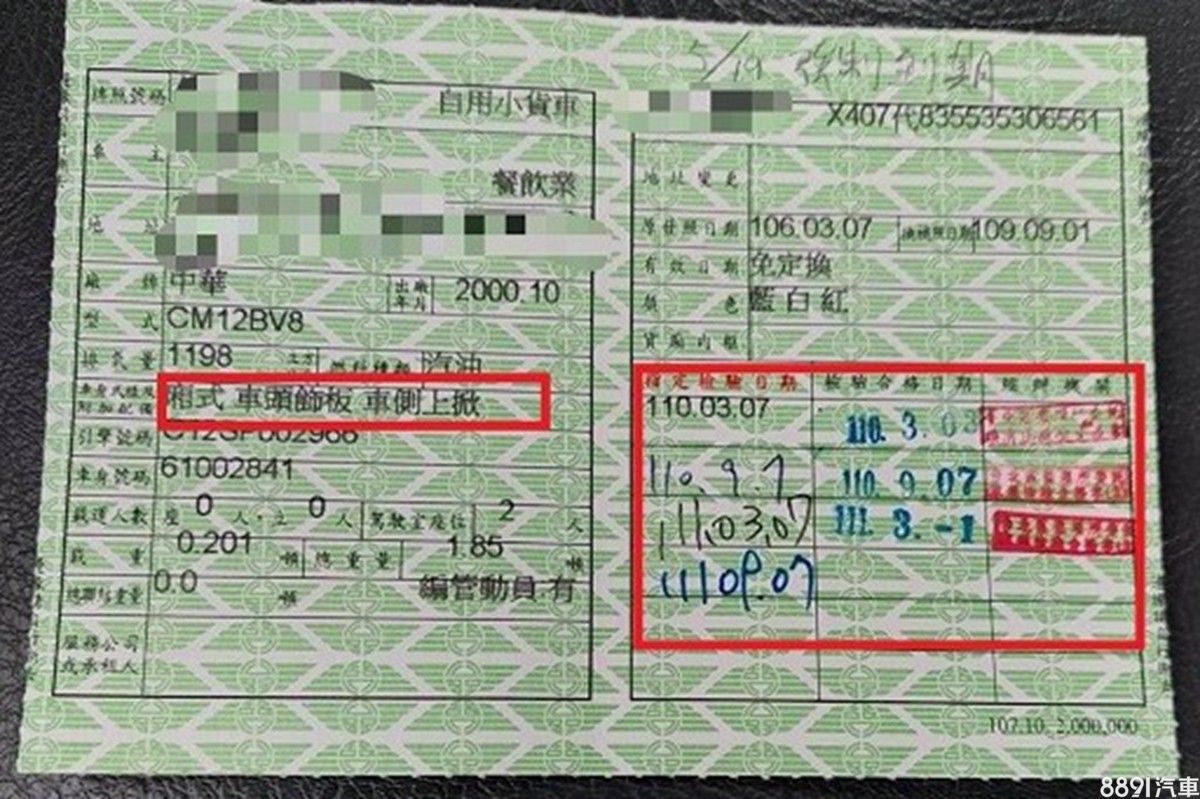 5/19 強制到期
牌照號碼 自用小貨車
X407代835535306561
車主 餐飲業
地址
地址變更
原發照日期 106.03.07 換補照日期 109.09.01
廠牌 中華 出廠年月 2000.10
有效日期 免定換
型式 CM12BV8
顏色 藍白紅
排氣量 1198 立方 燃料種類 汽油
貨廂內框
車身式樣及附加配備 廂式 車頭飾板 車側上掀
引擎號碼
車身號碼 61002841
載運人數 座 0 人.立 0 人 駕駛室座位 2 人
載重 0.201 噸 總重量 1.85 噸
總聯結重量 0.0 噸 編管動員 有
服務公司或承租人
指定檢驗日期 檢驗合格日期
110.03.07 110.3.03
110.9.7 110.9.07
111.03.07 111.3.-1
111.09.07
107.10. 2,000,000
8891汽車